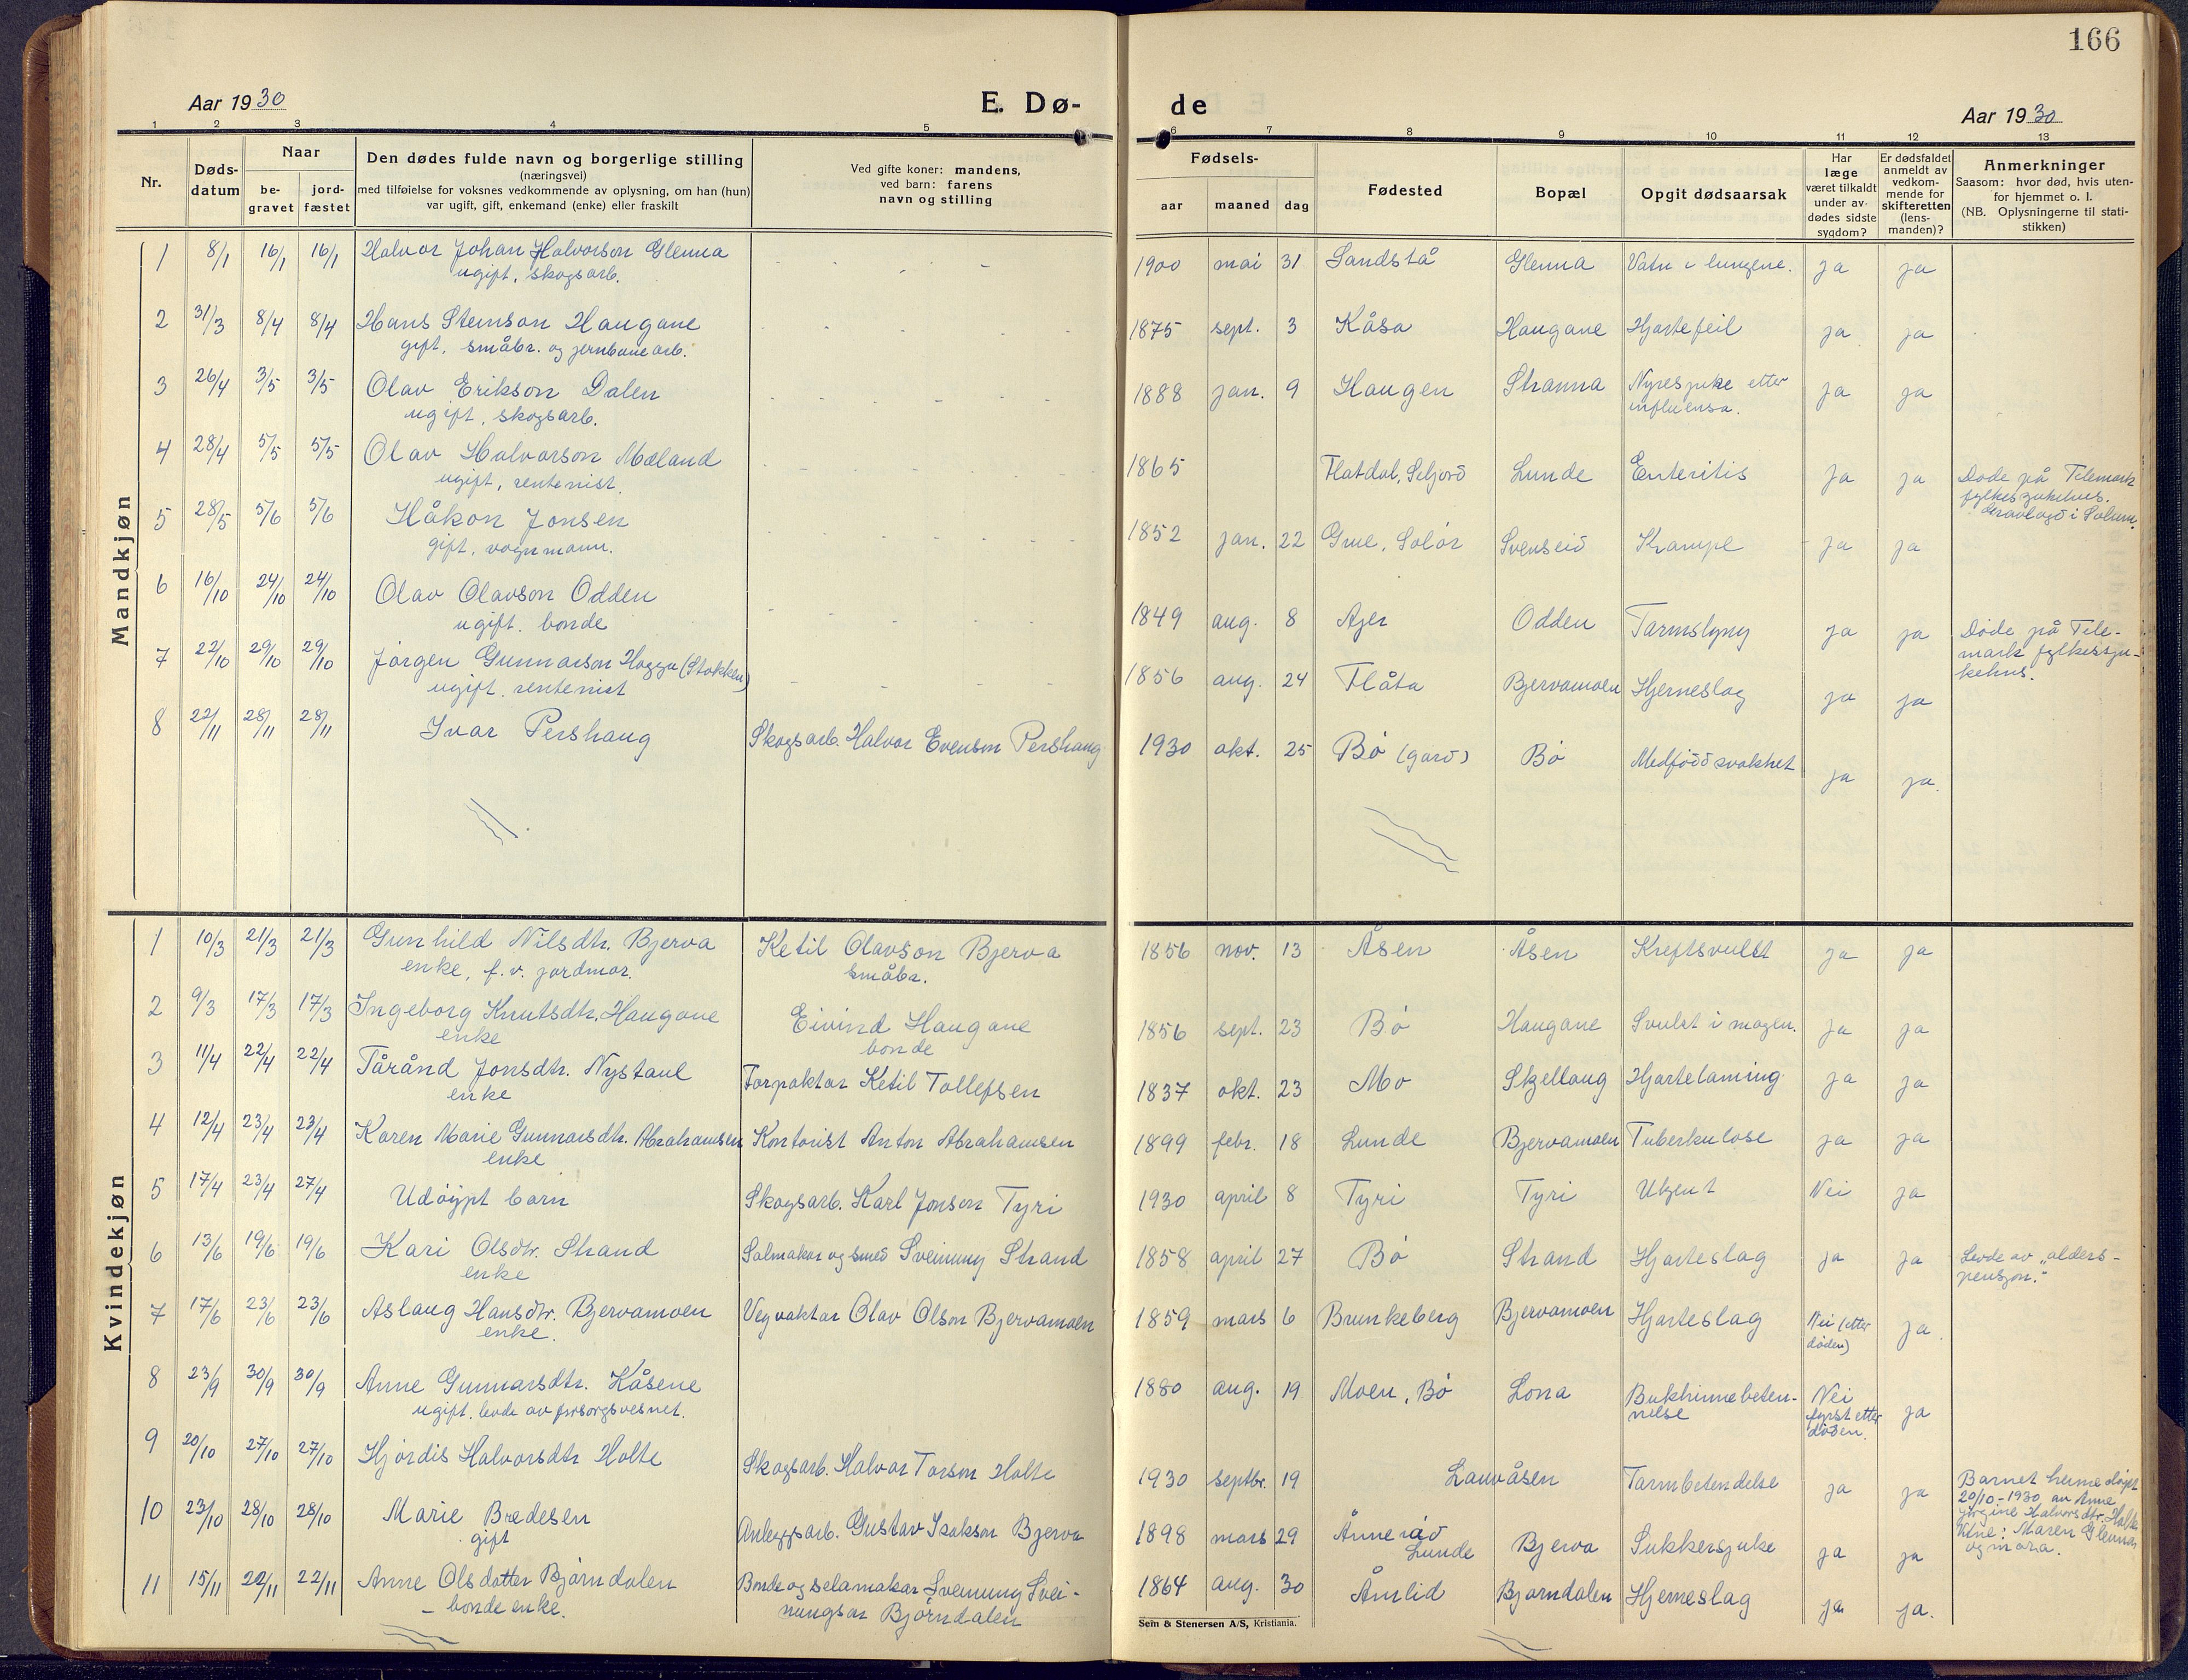 166
Aar 1930
E. Dø-
de
Aar 1930
1 2 3 4 5 6 7 8 9 10 11 12 13
Nr.
Døds-
datum
Naar
be-
gravet
jord-
fæstet
Den dødes fulde navn og borgerlige stilling
(næringsvei)
med tilføielse for voksnes vedkommende av oplysning, om han (hun)
var ugift, gift, enkemand (enke) eller fraskilt
Ved gifte koner: mandens,
ved barn: farens
navn og stilling
Fødsels-
aar maaned dag
Fødested
Bopæl
Opgit dødsaarsak
Har
læge
været tilkaldt
under av-
dødes sidste
sygdom?
Er dødsfaldet
anmeldt av
vedkom-
mende for
skifteretten
(lens-
manden)?
Anmerkninger
Saasom: hvor død, hvis uten-
for hjemmet o. l.
(NB. Oplysningerne til stati-
stikken)
Mandkjøn
1 8/1 16/1 16/1 Halvor Johan Halvorson Glenna 1900 mai 31 Sandstå Glenna Vatn i lungene. ja ja
ugift, skogsarb.
2 31/3 8/4 8/4 Hans Steinson Haugane 1875 sept. 3 Kåsa Haugane Hjartefeil ja ja
gift, småbr. og jernbanearb.
3 26/4 3/5 3/5 Olav Erikson Dalen 1888 jan. 9 Haugen Stranna Nyresjuke etter ja ja
ugift, skogsarb. influensa.
4 28/4 5/5 5/5 Olav Halvorson Mæland 1865 Flatdal, Seljord Lunde Enteritis ja ja Døde på Telemark
ugift, rentenist. fylkessjukehus.
i Solum.
5 28/5 5/6 5/6 Håkon Jonsen 1852 jan. 22 Grue, Solør Svenseid Krampe ja ja
gift, vognmann.
6 16/10 24/10 24/10 Olav Olavson Odden 1849 aug. 8 Ajer Odden Tarmslyng ja ja Døde på Tele-
ugift. bonde mark fylkessju-
kehus.
7 22/10 29/10 29/10 Jørgen Gunnarson Hogga (Stokken) 1856 aug. 24 Flåta Bjervamoen Hjerneslag ja ja
ugift. rentenist
8 22/11 28/11 28/11 Ivar Pershaug Skogsarb. Halvor Evenson Pershaug 1930 okt. 25 Bø (gard) Bø Medfødd svakhet ja ja.
Kvindekjøn
1 10/3 21/3 21/3 Gunhild Nilsdtr. Bjerva Ketil Olavson Bjerva 1856 nov. 13 Åsen Åsen Kreftsvulst ja ja
enke, f.v. jordmor. småbr.
2 9/3 17/3 17/3 Ingeborg Knutsdtr. Haugane Eivind Haugane 1856 sept. 23 Bø Haugane Svulst i magen. ja ja
enke bonde
3 11/4 22/4 22/4 Tårånd Jonsdtr. Nystaul Forpaktar Ketil Tollefsen 1837 okt. 23 Mo Skjellaug Hjartelaming ja ja
enke
4 12/4 23/4 23/4 Karen Marie Gunnarsdtr. Abrahamsen Kontorist Anton Abrahamsen 1899 febr. 18 Lunde Bjervamoen Tuberkulose ja ja
enke
5 17/4 23/4 27/4 Udøypt barn Skogsarb. Karl Jonson Tyri 1930 april 8 Tyri Tyri Ukjent Nei ja
6 13/6 19/6 19/6 Kari Olsdtr. Strand Salmakar og smed Sveinung Strand 1858 april 27 Bø Strand Hjarteslag ja ja Levde av "alders-
enke pensjon."
7 17/6 23/6 23/6 Aslaug Hansdtr. Bjervamoen Vegvaktar Olav Olson Bjervamoen 1859 mars 6 Brunkeberg Bjervamoen Hjarteslag Nei (etter ja
enke. døden)
8 23/9 30/9 30/9 Anne Gunnarsdtr. Kåsene 1880 aug. 19 Moen, Bø Lona Bukhinnebeten- Nei ja
ugift. levde av forsorgsvesnet. nelse fyrst etter
døden.
9 20/10 27/10 27/10 Hjørdis Halvorsdtr Holte Skogsarb. Halvor Torson Holte 1930 septbr. 19 Lauvåsen Tarmbetendelse ja ja Barnet heime døypt
20/10-1930 av Anne
Jørgine Halvorsdtr. Holte
Vitne: Maren Glenna
og mora.
10 23/10 28/10 28/10 Marie Bredesen Anleggsarb. Gustav Isakson Bjerva 1898 mars 29 Ånnerød Bjerva Sukkersjuke ja ja
gift Lunde
11 15/11 22/11 22/11 Anne Olsdatter Bjørndalen Bonde og selamakar Sveinung Svei- 1864 aug. 30 Åmlid Bjørndalen Hjerneslag ja ja.
- bonde enke. nungson Bjørndalen
Sem & Stenersen A/S, Kristiania.